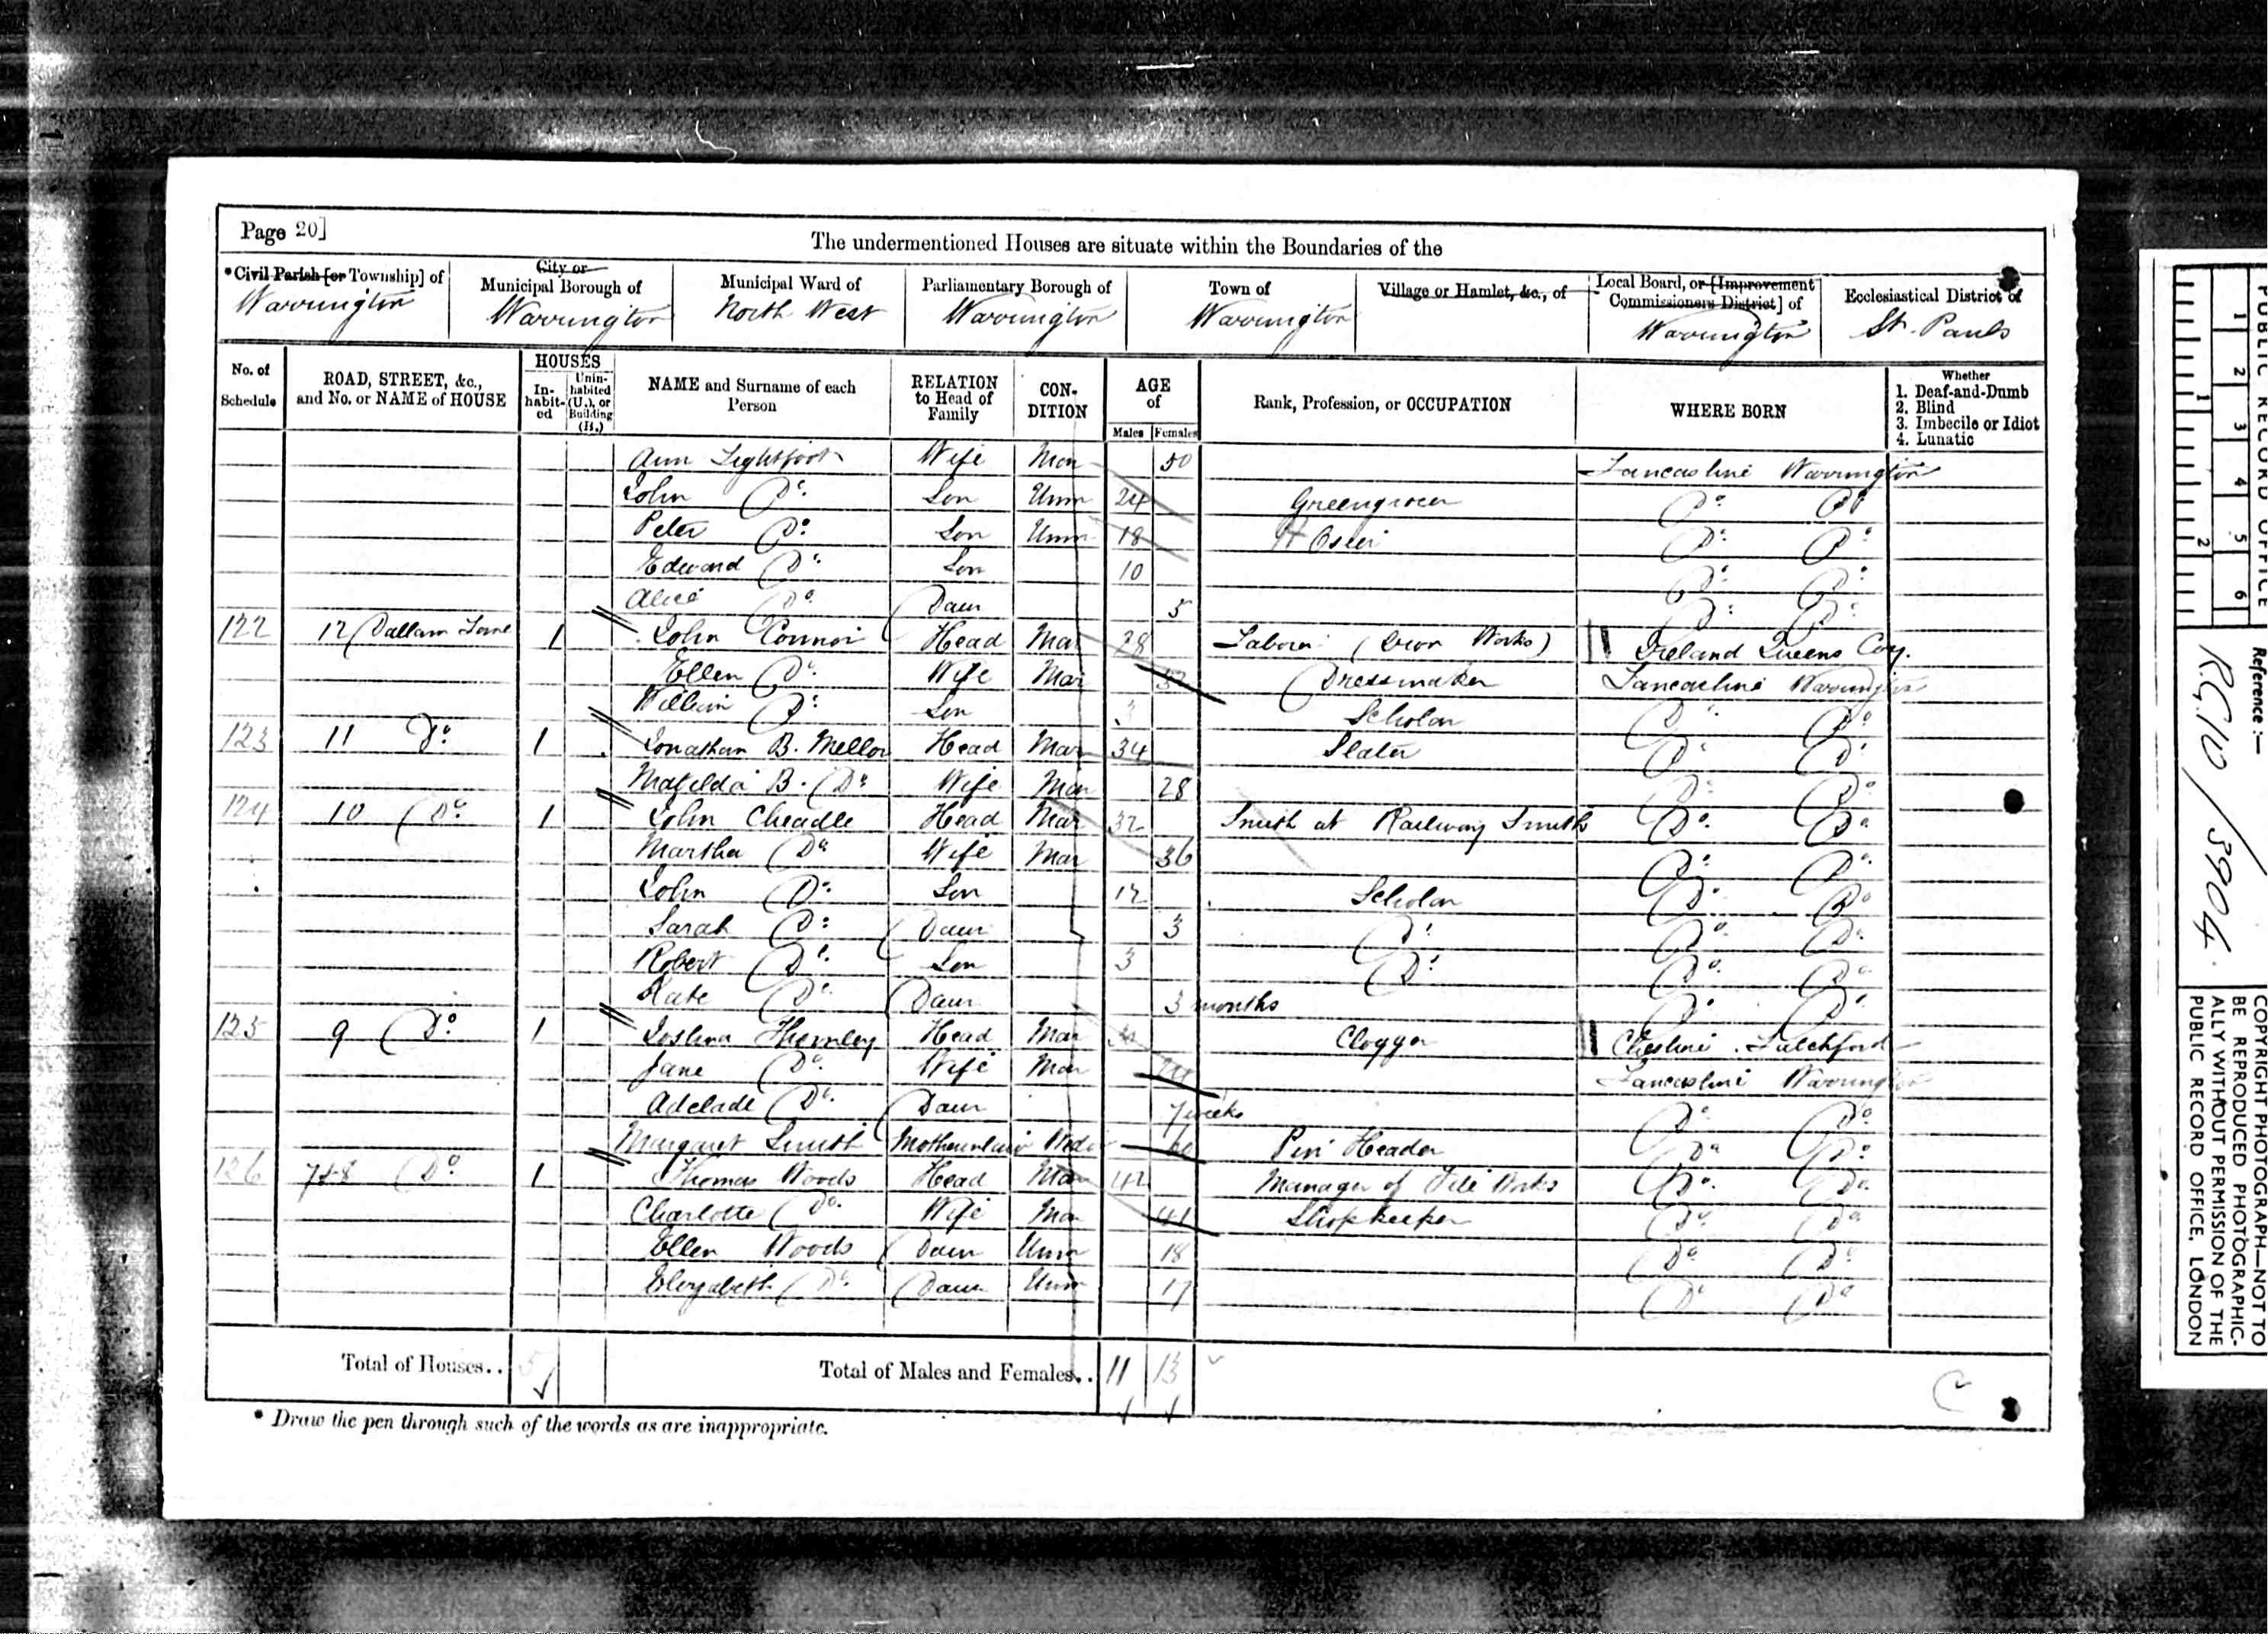 Page 20]
The undermentioned Houses are situate within the Boundaries of the
*Civil Parish [or Township] of Warrington
City or Municipal Borough of Warrington
Municipal Ward of North West
Parliamentary Borough of Warrington
Town of Warrington
Village or Hamlet, &c., of
Local Board, or [Improvement Commissioners District] of Warrington
Ecclesiastical District of St. Pauls
No. of Schedule
ROAD, STREET, &c., and No. or NAME of HOUSE
HOUSES
In-habit-ed
Unin-habited (U.), or Building (B.)
NAME and Surname of each Person
RELATION to Head of Family
CON-DITION
AGE of
Males Females
Rank, Profession, or OCCUPATION
WHERE BORN
Whether
1. Deaf-and-Dumb
2. Blind
3. Imbecile or Idiot
4. Lunatic
Ann Lightfoot Wife Mar 50 Lancashire Warrington
John Do. Son Unm 24 Greengrocer Do. Do.
Peter Do. Son Unm 18 Osler Do. Do.
Edward Do. Son 10 Do. Do.
Alice Do. Daur 5 Do. Do.
122 12 Dallam Lane 1 John Connor Head Mar 28 Laborer (Iron Works) Ireland Queens Coy.
Ellen Do. Wife Mar Dressmaker Lancashire Warrington
William Do. Son 3 Scholar Do. Do.
123 11 Do. 1 Jonathan B. Mellor Head Mar 34 Slater Do. Do.
Matilda B. Do. Wife Mar 28 Do. Do.
124 10 Do. 1 John Cheadle Head Mar 32 Smith at Railway Smiths Do. Do.
Martha Do. Wife Mar 36 Do. Do.
John Do. Son 12 Scholar Do. Do.
Sarah Do. Daur 3 Do. Do. Do.
Robert Do. Son 3 Do. Do. Do.
Kate Do. Daur 3 months Do. Do.
125 9 Do. 1 Joshua Thornley Head Mar Clogger Cheshire Latchford
Jane Do. Wife Mar Lancashire Warrington
Adelade Do. Daur 7 weeks Do. Do.
Margaret Smith Motherinlaw Wid 60 Pin Header Do. Do.
126 7+8 Do. 1 Thomas Woods Head Mar 42 Manager of File Works Do. Do.
Charlotte Do. Wife Mar 41 Shopkeeper Do. Do.
Ellen Woods Daur Unm 18 Do. Do.
Elizabeth Do. Daur Unm 17 Do. Do.
Total of Houses.. 5
Total of Males and Females.. 11 13
* Draw the pen through such of the words as are inappropriate.
PUBLIC RECORD OFFICE
1 2 3 4 5 6
1 2
Reference :—
R.G. 10 / 3904
COPYRIGHT PHOTOGRAPH—NOT TO
BE REPRODUCED PHOTOGRAPHIC-
ALLY WITHOUT PERMISSION OF THE
PUBLIC RECORD OFFICE, LONDON